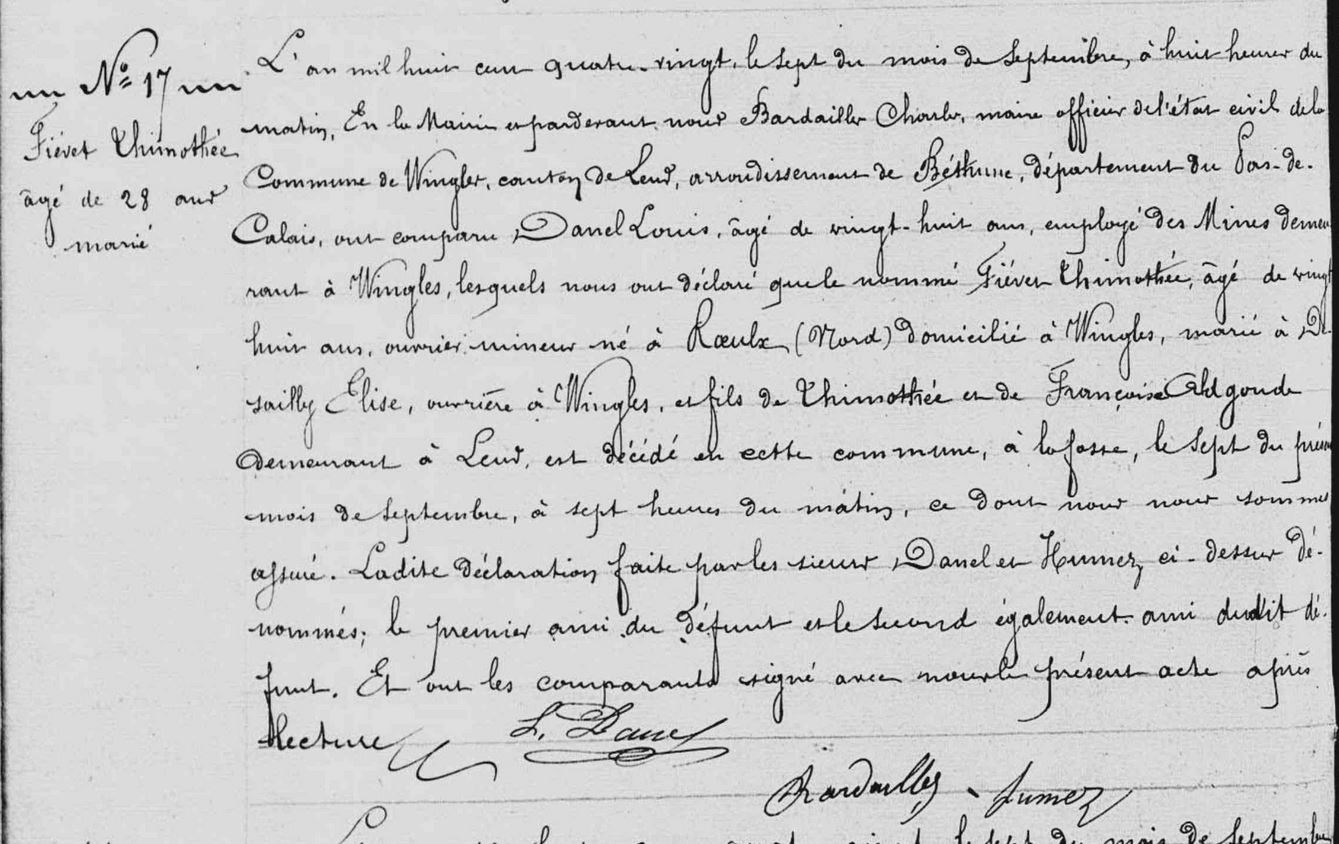 N° 17
Fiévet Thimothée
âgé de 28 ans
marié
L'an mil huit cent quatre-vingt, le sept du mois de Septembre, à huit heures du
matin, En la Mairie et pardevant nous Bardailler Charles, maire officier de l'état civil de la
Commune de Wingles, canton de Lens, arrondissement de Béthune, département du Pas-de-
Calais, ont comparu Danel Louis, âgé de vingt-huit ans, employé des Mines demeu
rant à Wingles, lesquels nous ont déclaré que le nommé Fiévet Thimothée, âgé de vingt
huit ans, ouvrier mineur né à Rœulx (Nord) domicilié à Wingles, marié à De-
sailly Elise, ouvrière à Wingles, et fils de Thimothée et de Françoise Aldgonde
demeurant à Lens, est décédé en cette commune, à la fosse, le sept du présent
mois de septembre, à sept heures du matin, ce dont nous nous sommes
assuré. Ladite déclaration faite par les sieurs Danel et Humez ci-dessus dé-
nommés; le premier ami du défunt et le second également ami dudit dé-
funt. Et ont les comparants signé avec nous le présent acte après
lecture
L. Danel
Bardailler Humez
le sept du mois de Septembre